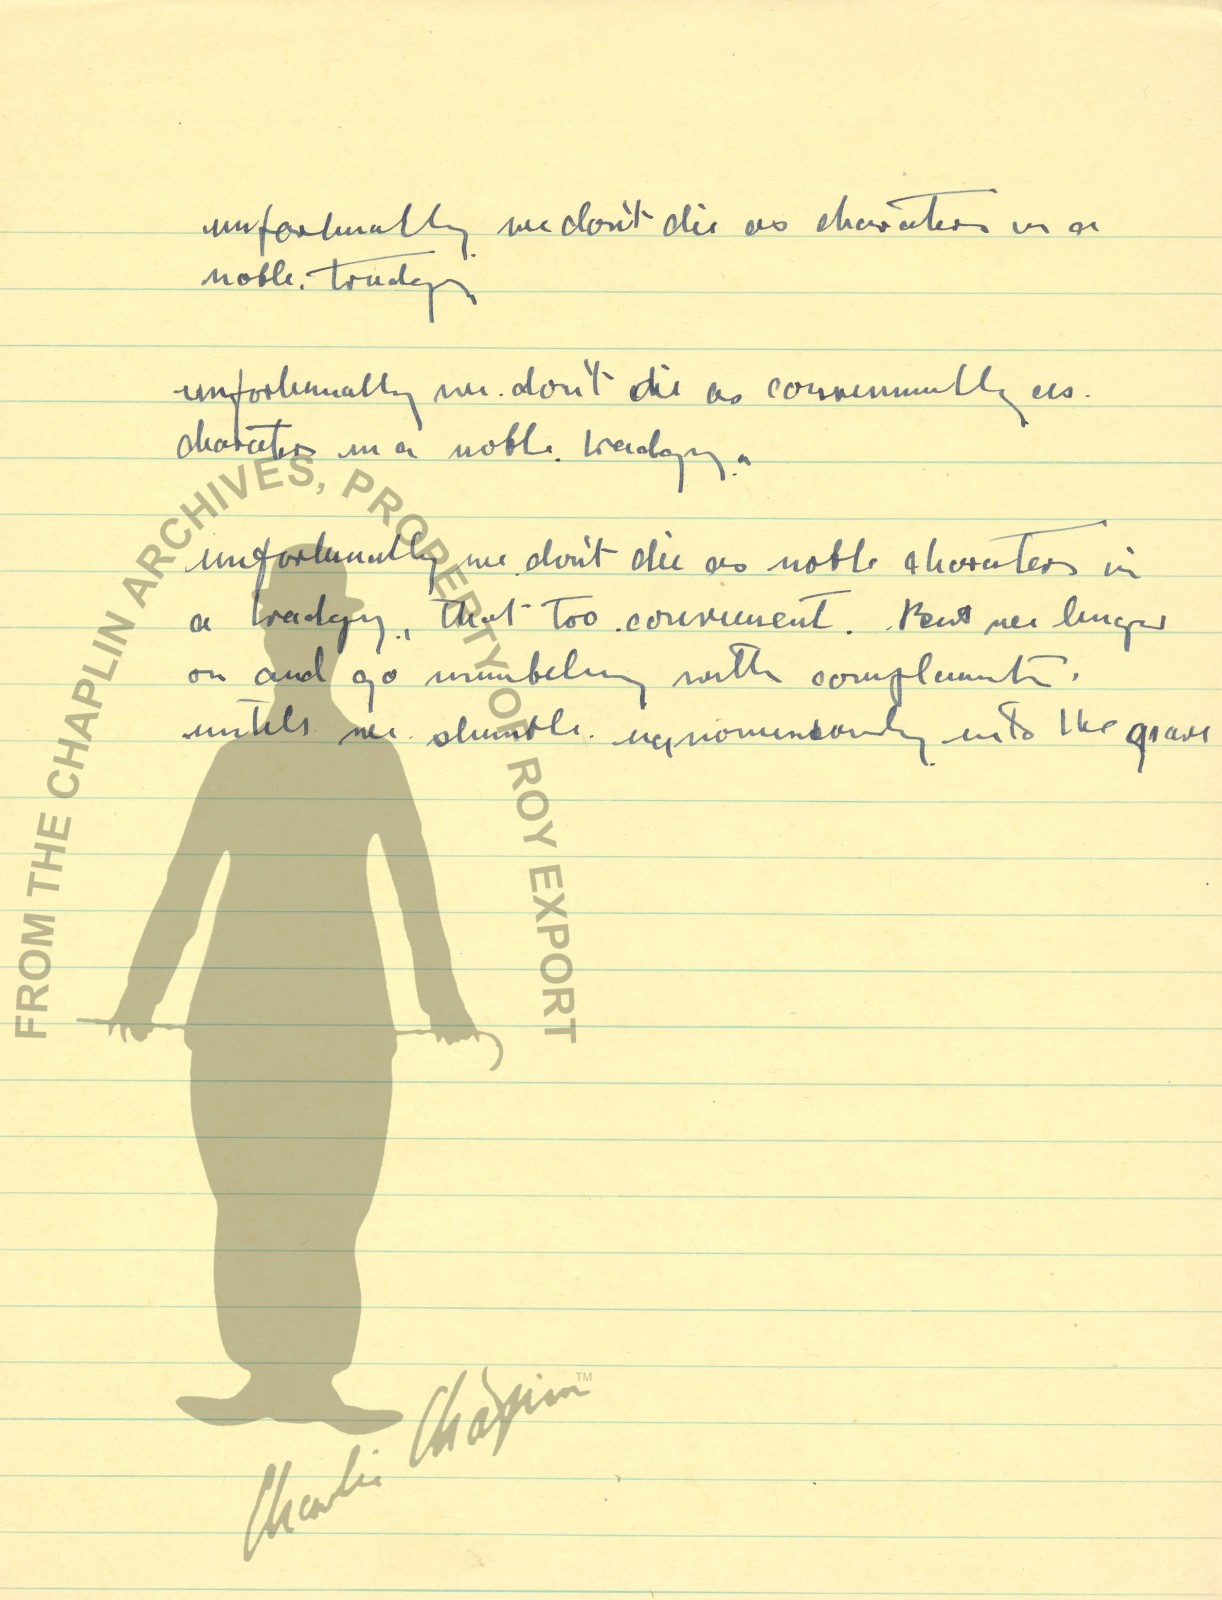 unfortunatly we don't die as charaters in a
noble. tradgy
unfortunatly we. don't die as convenuntly as.
charaters in a noble. tradgy.
unfortunatly we don't die as noble charaters in
a tradgy, that too convenient. But we linger
on and go with
we. stumble. into the grave
FROM THE CHAPLIN ARCHIVES, PROPERTY OF ROY EXPORT
Charlie Chaplin TM